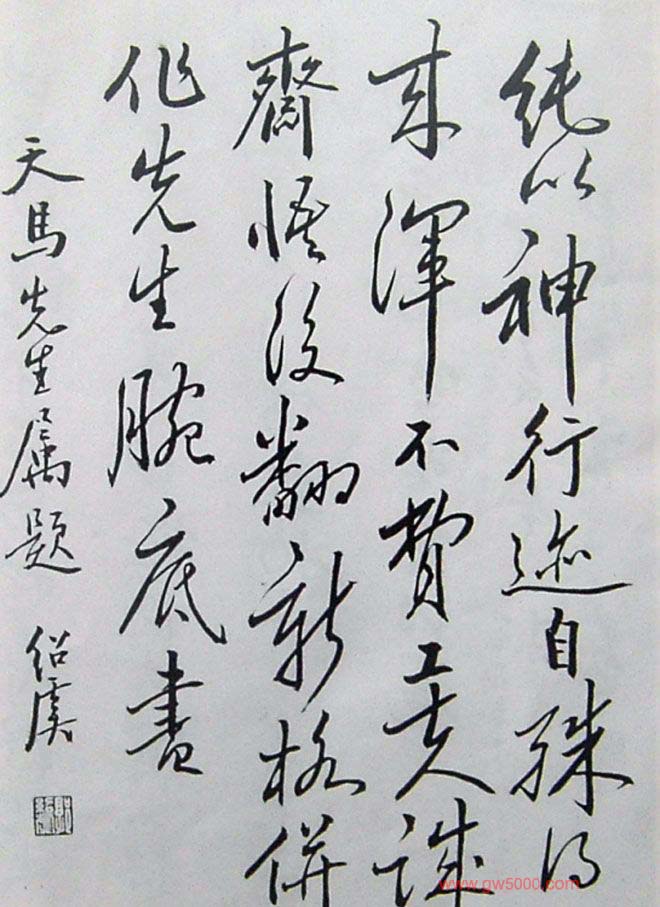 純以神行迹自殊得
来渾不費工夫誠
齋悟後翻新格併
作先生腕底書
天馬先生属題 紹虞
www.gw5000.com